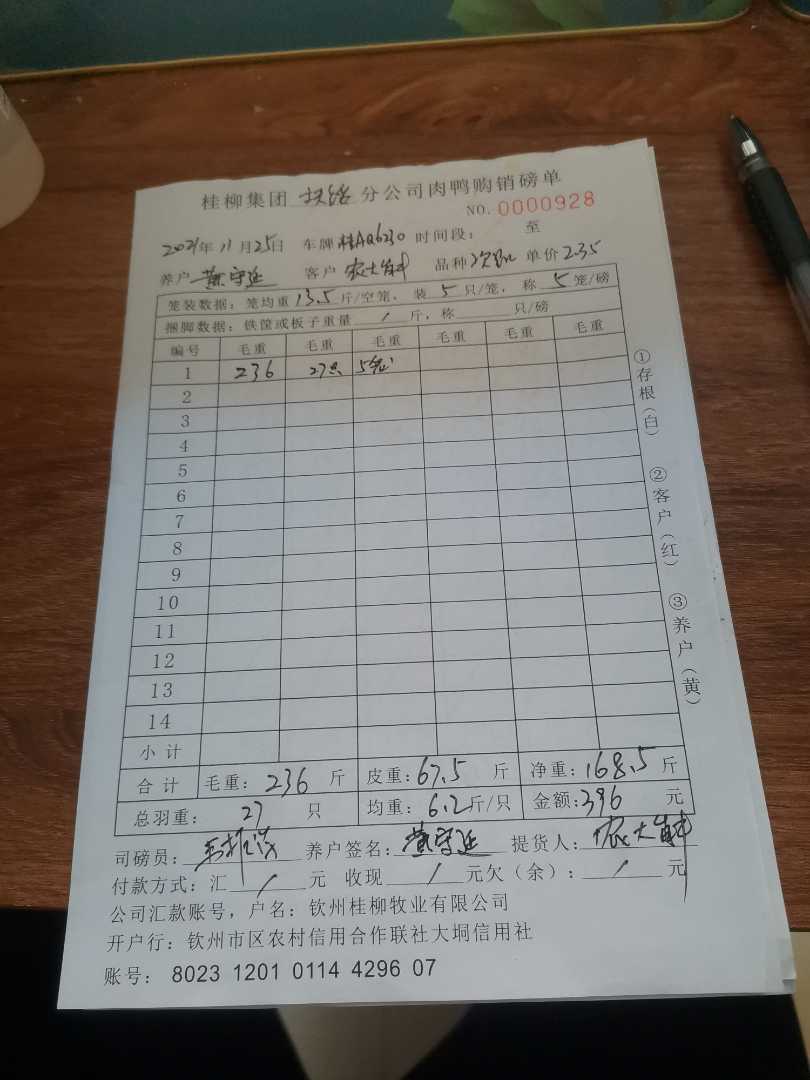 桂柳集团 扶绥 分公司肉鸭购销磅单
NO. 0000928
2021年 11月 25日 车牌 桂AQ6230 时间段: 至
养户 黄守延 客户 农大省 品种 次鸭 单价 2.35
笼装数据:笼均重 13.5 斤/空笼, 装 5 只/笼, 称 5 笼/磅
捆脚数据:铁筐或板子重量 / 斤,称 只/磅
编号 毛重 毛重 毛重 毛重 毛重 毛重
1 236 27只 5笼
2
3
4
5
6
7
8
9
10
11
12
13
14
小计
合计 毛重: 236 斤 皮重: 67.5 斤 净重: 168.5 斤
总羽重: 27 只 均重: 6.2 斤/只 金额: 396 元
司磅员: 养户签名: 黄守延 提货人: 农大
付款方式:汇 / 元 收现 / 元欠(余): / 元
公司汇款账号,户名:钦州桂柳牧业有限公司
开户行:钦州市区农村信用合作联社大垌信用社
账号: 8023 1201 0114 4296 07
①存根(白) ②客户(红) ③养户(黄)